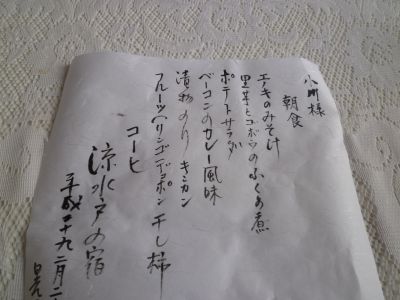 小町様
朝食
エノキのみそ汁
里芋とゴボウのふくめ煮
ポテトサラダ
ベーコンのカレー風味
漬物 のり キンカン
フルーツ(リンゴ)デコポン 干し柿
コーヒ
涼水戸の宿
平成十九二月二